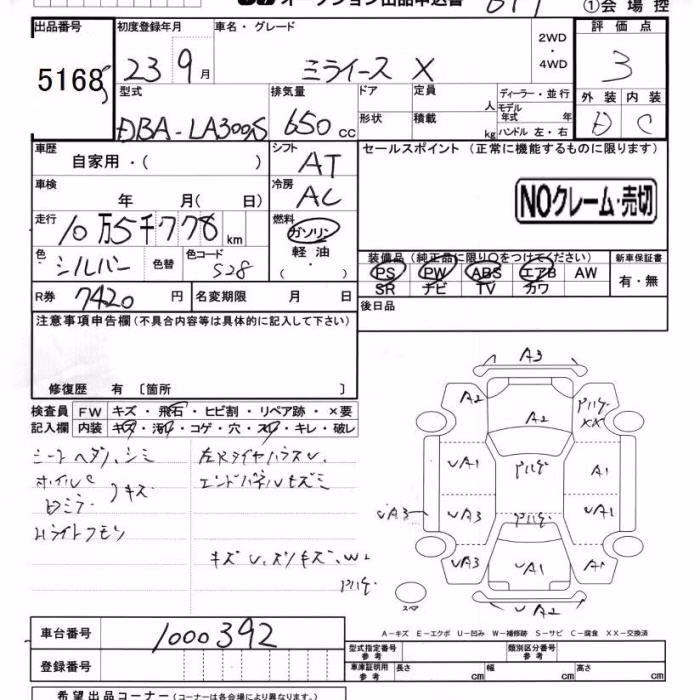 オークション出品申込書
①会場控
出品番号 初度登録年月 車名・グレード 2WD・4WD 評価点
5168 23 9月 ミライース X 3
型式 排気量 ドア 定員 人 ディーラー・並行 外装 内装
DBA-LA300S 650cc 形状 積載 kg モデル年式 年 ハンドル 左・右 D C
車歴 自家用・( ) シフト AT セールスポイント (正常に機能するものに限ります)
車検 年 月( 日) 冷房 AC
NOクレーム・売切
走行 10万5千778km 燃料 ガソリン
軽油・( )
色 シルバー 色替 色コード S28
装備品 (純正品に限り○をつけてください) 新車保証書
PS PW ABS エアB AW 有・無
SR ナビ TV カワ
R券 7420円 名変期限 月 日 後日品
注意事項申告欄 (不具合内容等は具体的に記入して下さい)
修復歴 有 〔箇所 〕
検査員 FW キズ・飛石・ヒビ割・リペア跡・×要
記入欄 内装 キズ・汚れ・コゲ・穴・スレ・キレ・破レ
シートヘタリ、シミ
キズ
Hライトクモリ
エンドパネルキズミ
A3
A2 A2 XX
UA1 A1
UA3 UA3 UA1
UA3 UA1 A1
UA2
スペア
A-キズ E-エクボ U-凹み W-補修跡 S-サビ C-腐食 XX-交換済
車台番号 1000392
登録番号
型式指定番号 参考 類別区分番号 参考
車庫証明用 参考 長さ cm 幅 cm 高さ cm
希望出品コーナー (コーナーは各会場により異なります。)